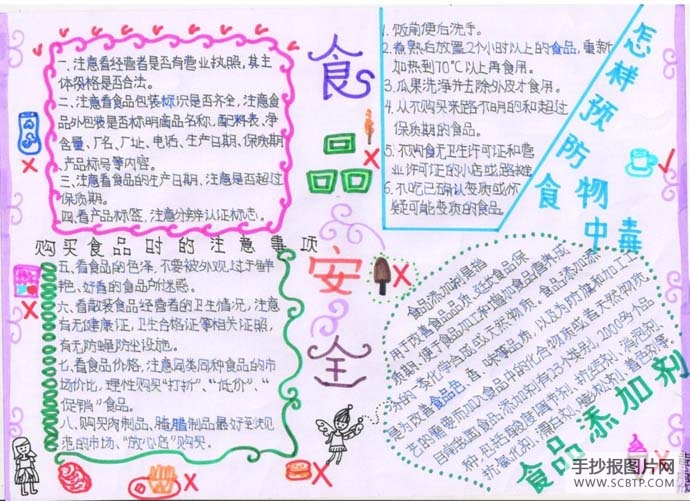 一、注意看经营者是否有营业执照,其主
体资格是否合法。
二、注意看食品包装标识是否齐全,注意食
品外包装是否标明商品名称、配料表、净
含量、厂名、厂址、电话、生产日期、保质期
产品标号等内容。
三、注意看食品的生产日期,注意是否超过
保质期。
四、看产品标签,注意分辨认证标志。
购买食品时的注意事项
五、看食品的色泽,不要被外观过于鲜
艳、好看的食品所迷惑。
六、看散装食品经营者的卫生情况,注意
有无健康证,卫生合格证等相关证照,
有无防蝇防尘设施。
七、看食品价格,注意同类同种食品的市
场价比,理性购买“打折”、“低价”、“
促销”食品。
八、购买肉制品、腌腊制品最好到规
范的市场、“放心店”购买。
食品安全
1. 饭前便后洗手。
2. 煮熟后放置2个小时以上的食品,重新
加热到70℃以上再食用。
3. 瓜果洗净并去除外皮才食用。
4. 从不购买来路不明的和超过
保质期的食品。
5. 不购食无卫生许可证和营
业许可证的小店或路摊
6. 不吃已确认变质或怀
疑可能变质的食品
怎样预防食物中毒
食品添加剂是指
用于改善食品品质、延长食品保
质期、便于食品加工和增加食品营养成
分的一类化学合成或天然物质。食品添加剂
是为改善食品色、香、味等品质,以及为防腐和加工工
艺的需要而加入食品中的化合物质或者天然物质
目前我国食品添加剂有23个类别,2000多个品
种,包括酸度调节剂、抗结剂、消泡剂、
抗氧化剂、漂白剂、膨松剂、着色剂等
食品添加剂
手抄报图片网
WWW.SCBTP.COM